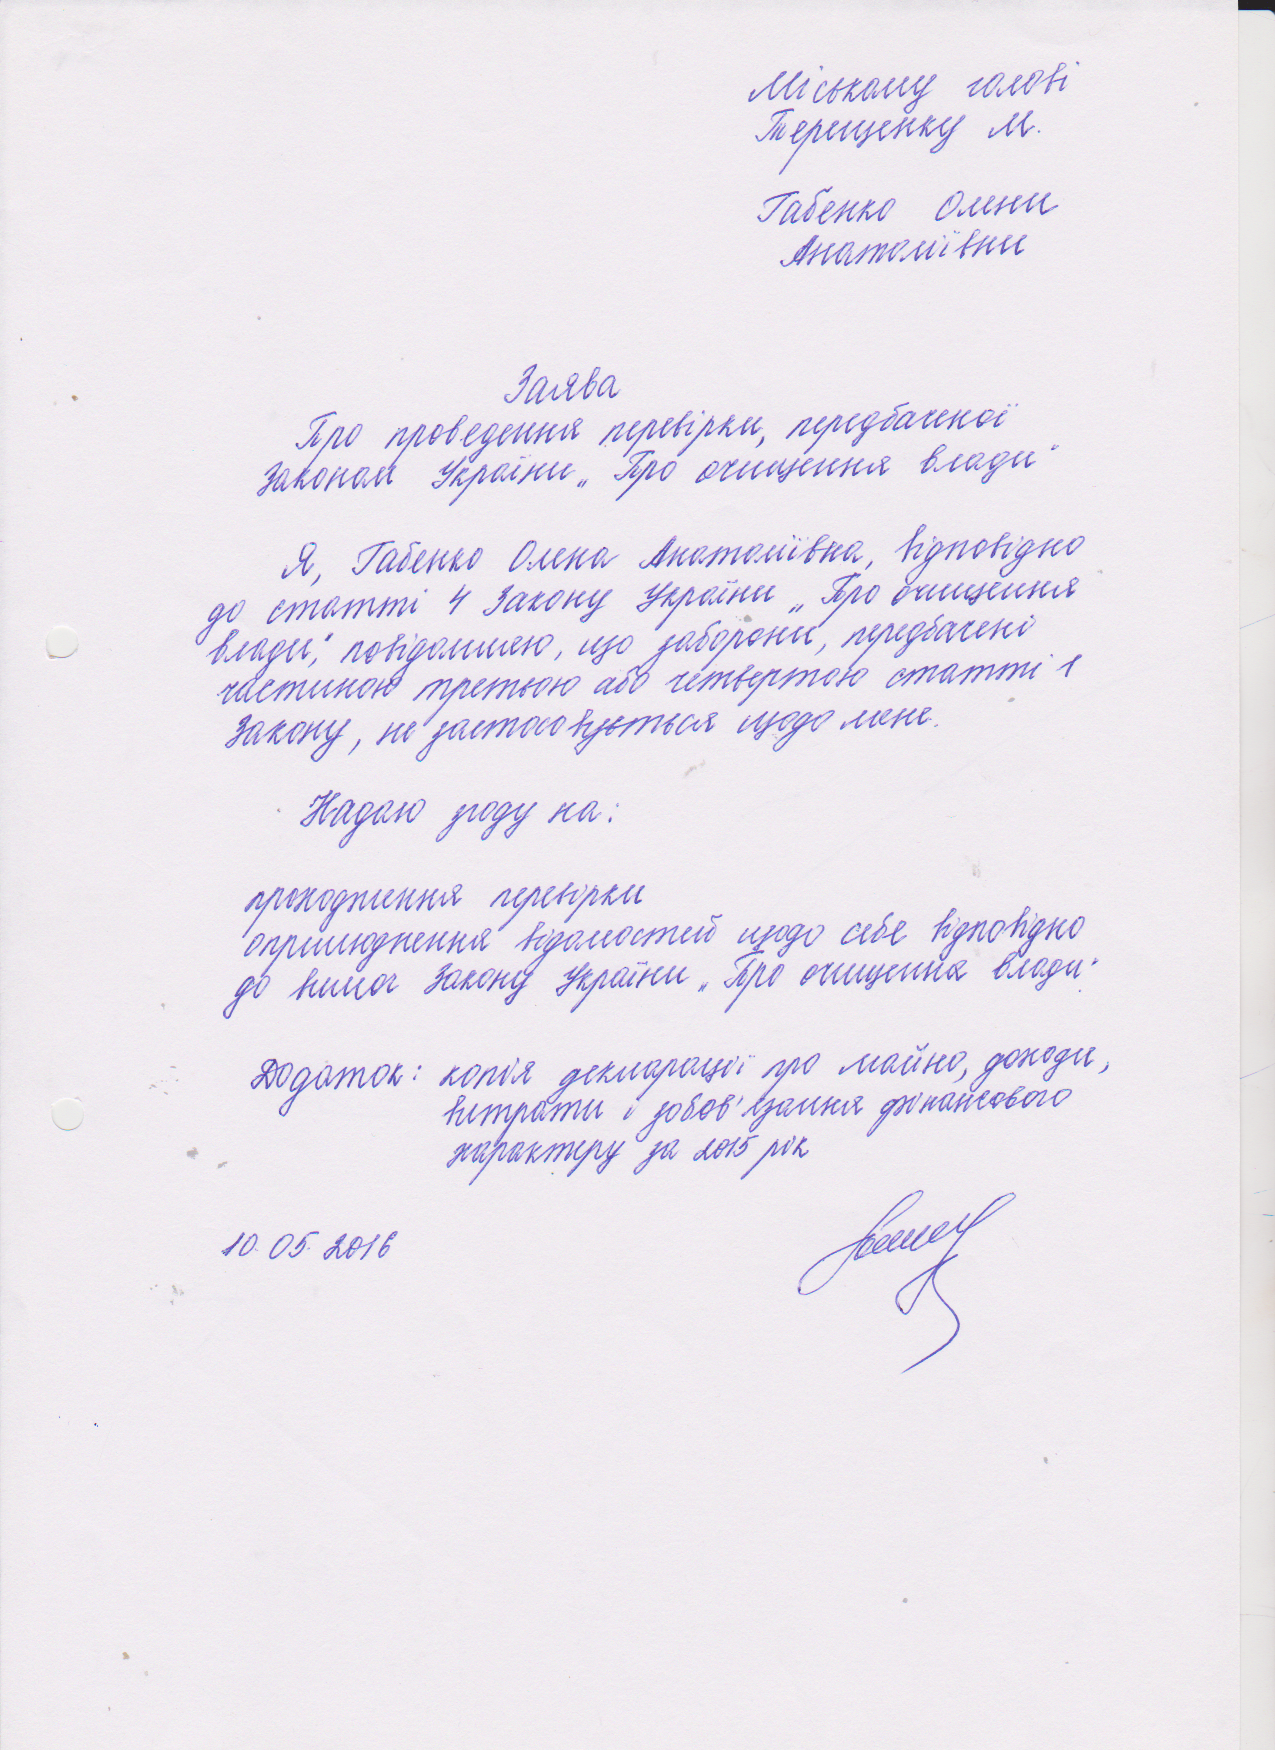 Міському голові
Терещенку М.
Габенко Олени
Анатоліївни
Заява
Про проведення перевірки, передбаченої
Законом України „Про очищення влади"
Я, Габенко Олена Анатоліївна, відповідно
до статті 4 Закону України „Про очищення
влади", повідомляю, що заборони, передбачені
частиною третьою або четвертою статті 1
Закону, не застосовується щодо мене.
Надаю згоду на:
проходження перевірки
оприлюднення відомостей щодо себе відповідно
до вимог Закону України „Про очищення влади".
Додаток: копія декларації про майно, доходи,
витрати і зобов'язання фінансового
характеру за 2015 рік
10.05.2016